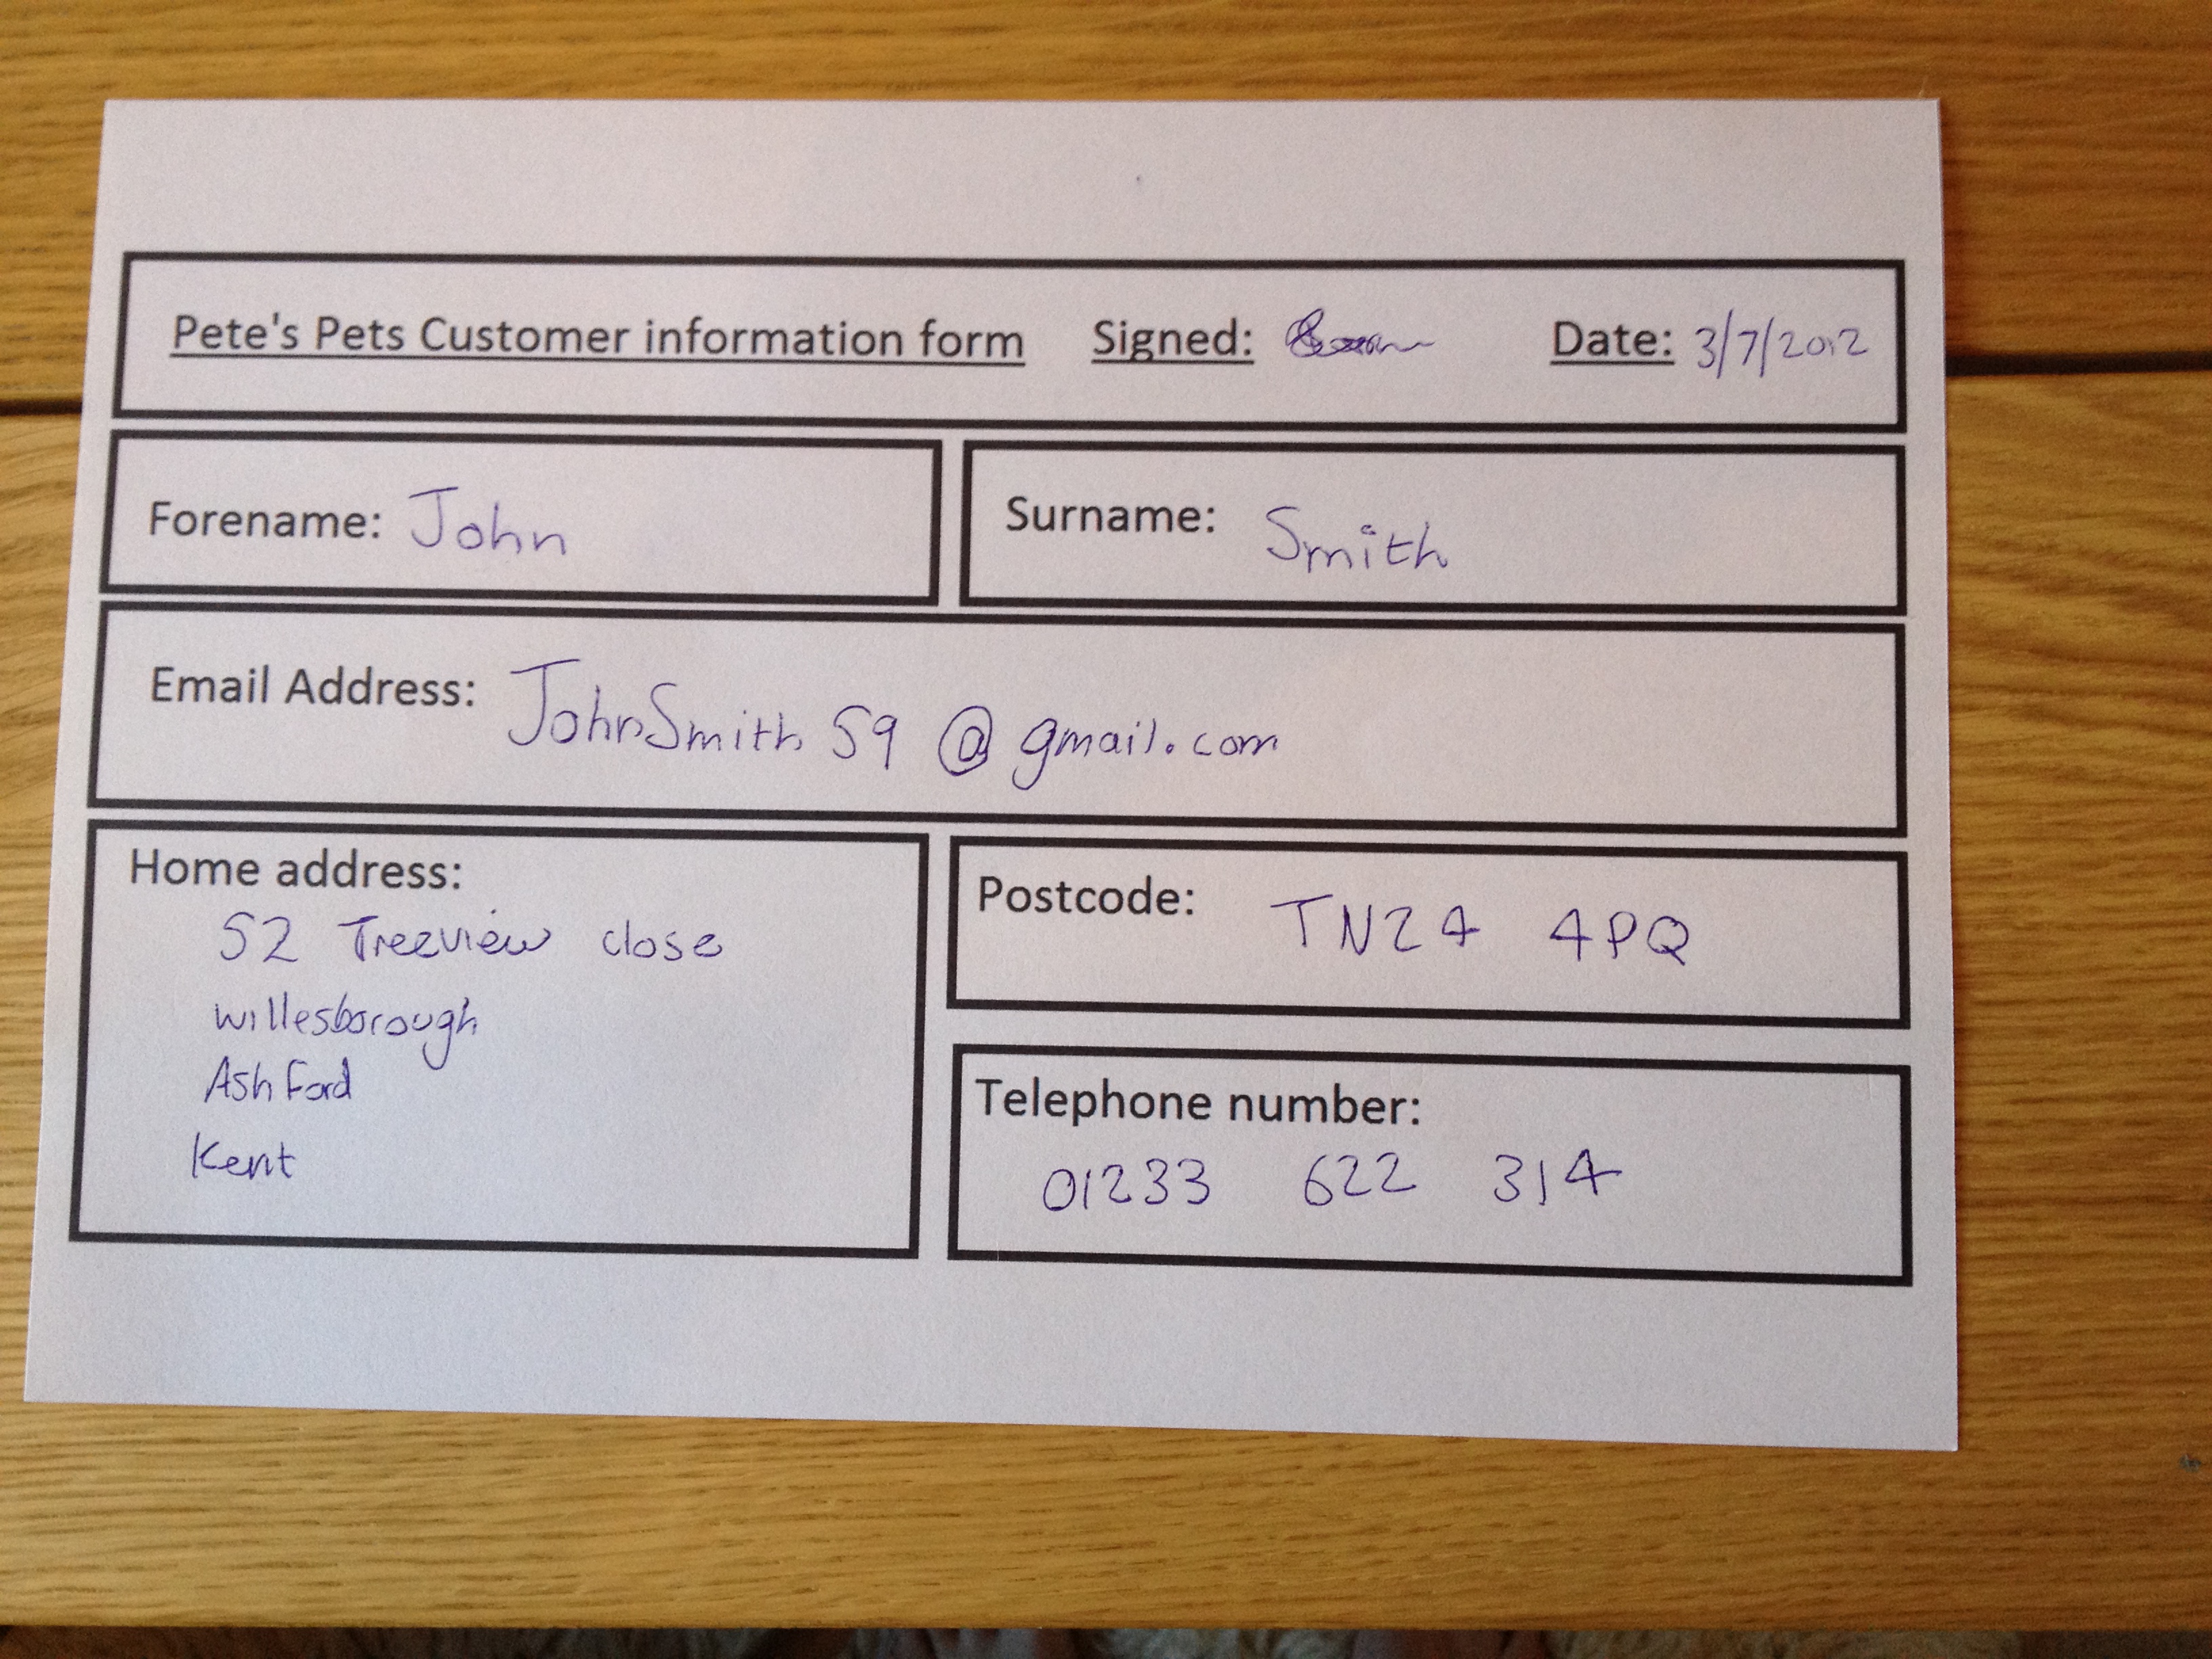 Pete's Pets Customer information form Signed: Date: 3/7/2012
Forename: John Surname: Smith
Email Address: JohnSmith59@gmail.com
Home address:
52 Treeview close
Willesborough
Ashford
Kent
Postcode: TN24 4PQ
Telephone number:
01233 622 314